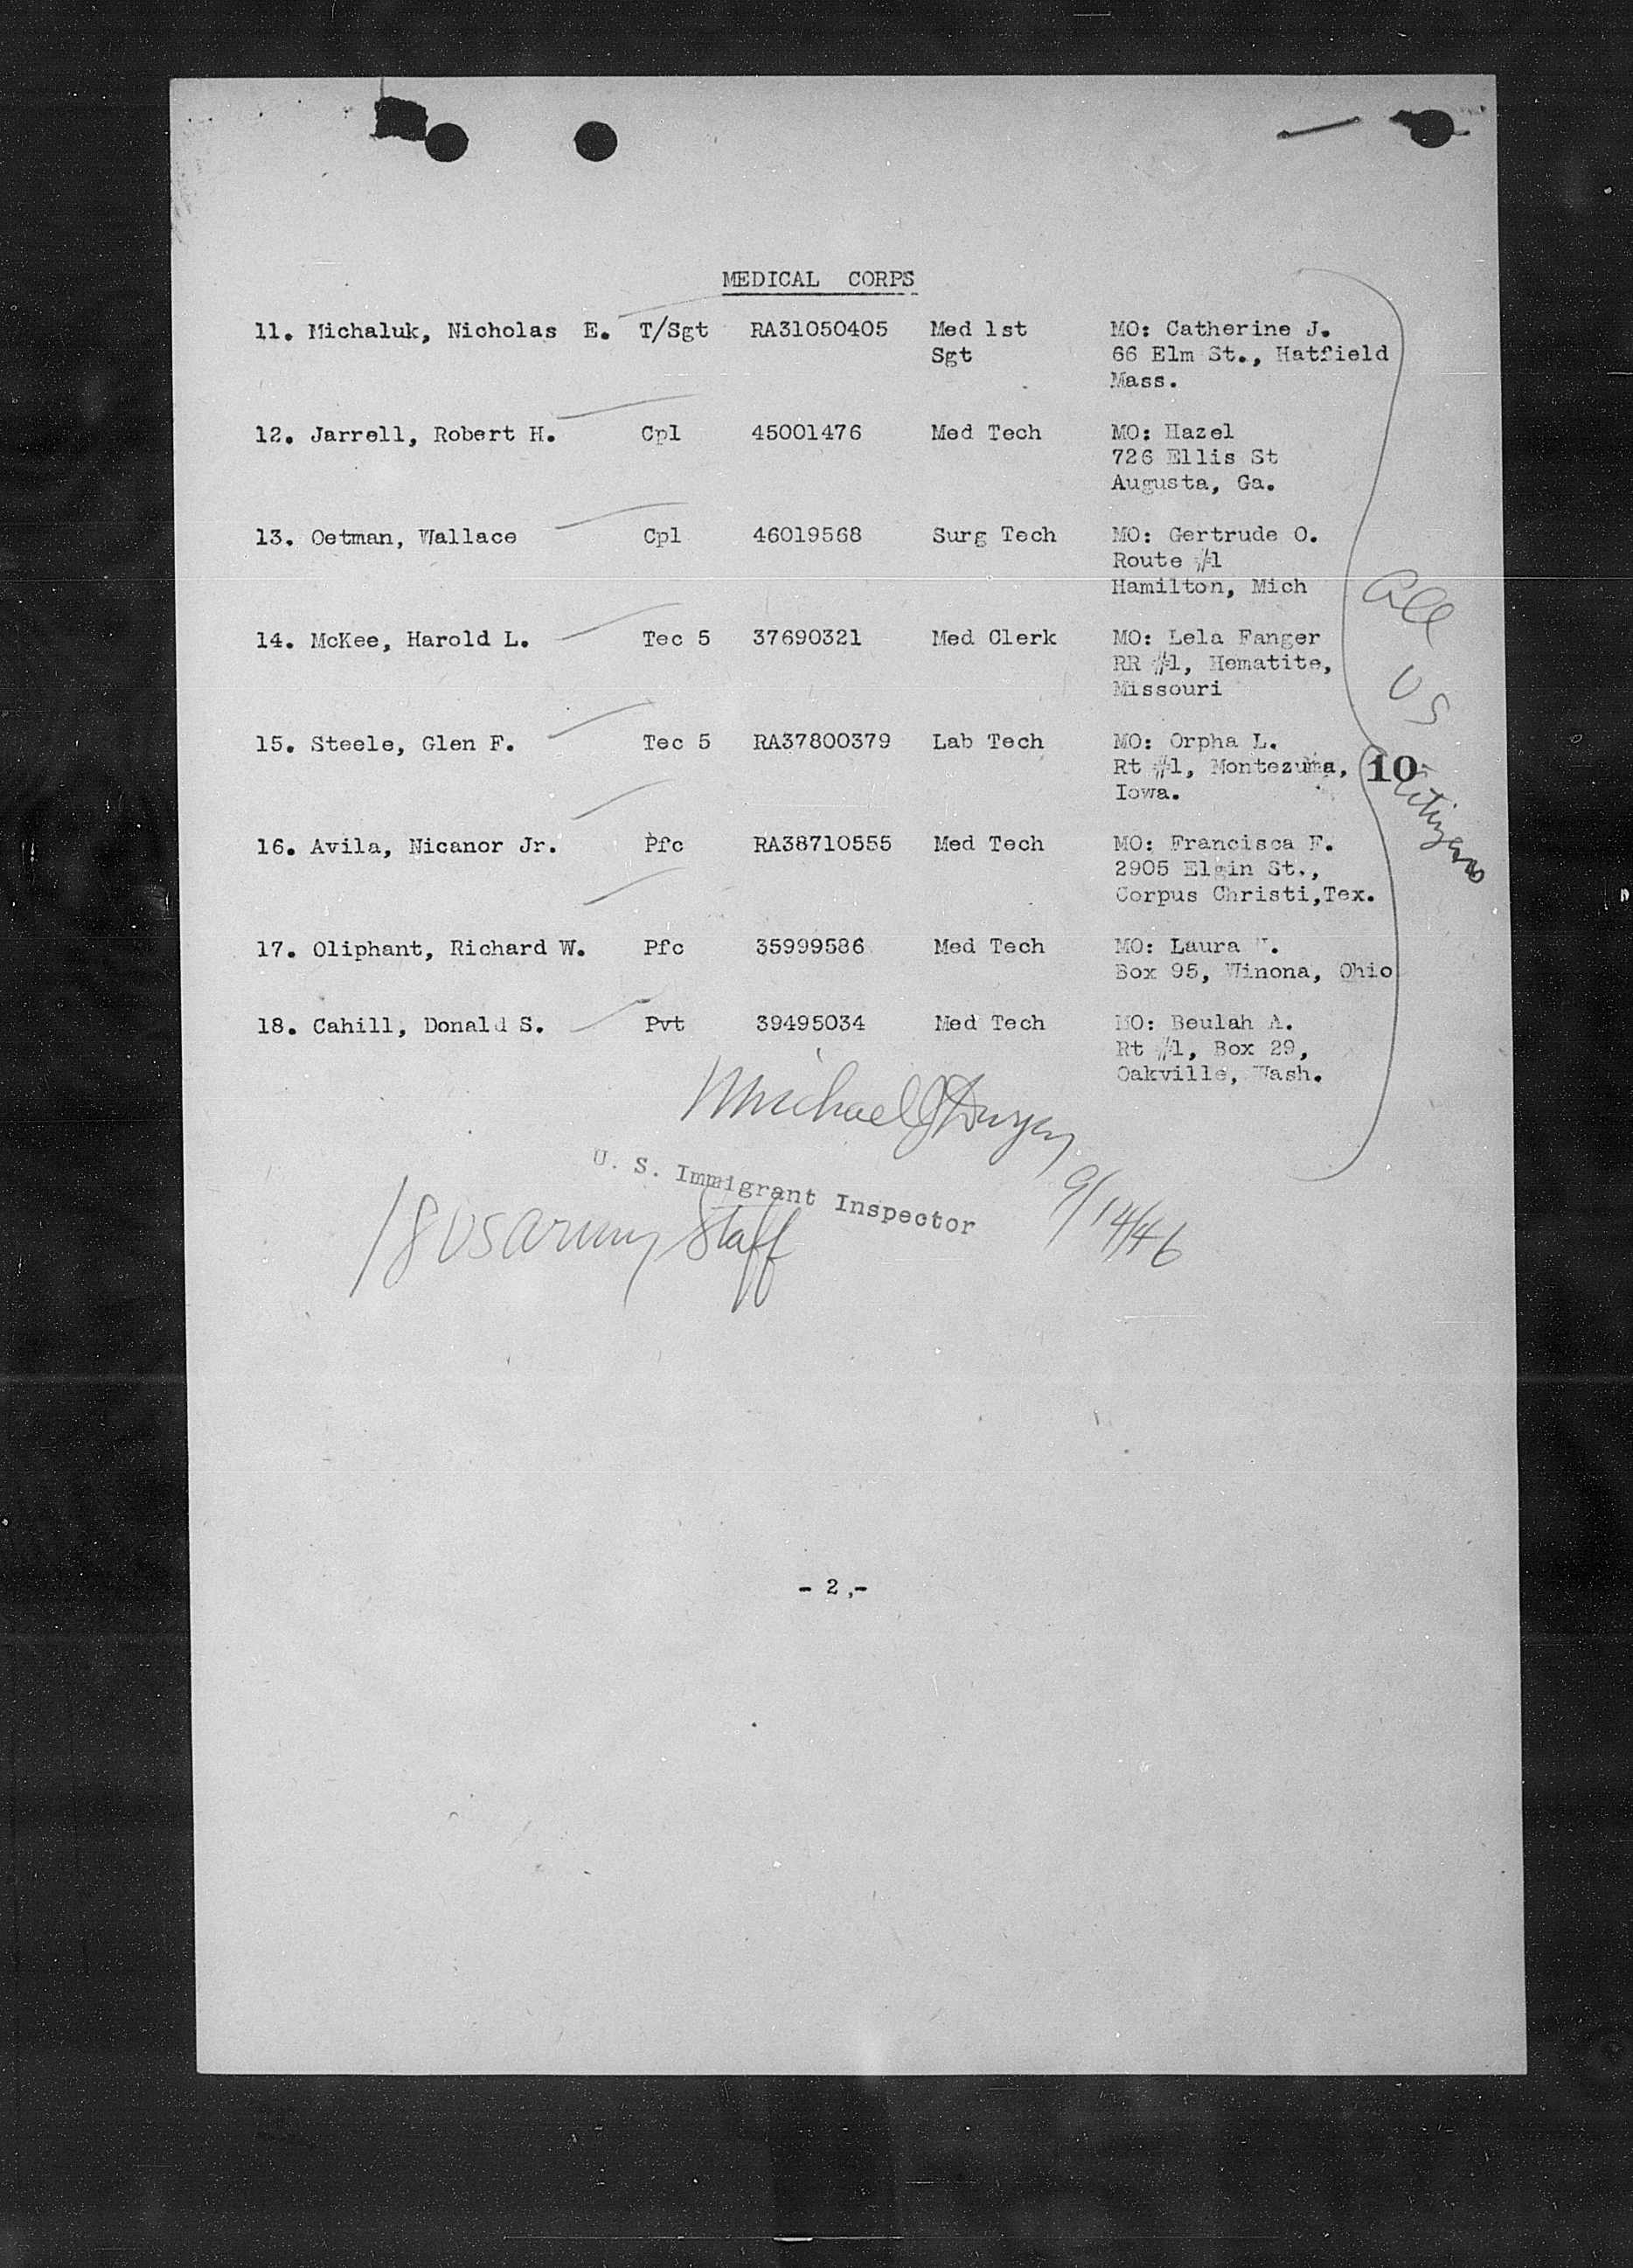 MEDICAL CORPS
11. Michaluk, Nicholas E. T/Sgt RA31050405 Med 1st MO: Catherine J.
Sgt 66 Elm St., Hatfield
Mass.
12. Jarrell, Robert H. Cpl 45001476 Med Tech MO: Hazel
726 Ellis St
Augusta, Ga.
13. Oetman, Wallace Cpl 46019568 Surg Tech MO: Gertrude O.
Route #1
Hamilton, Mich
14. McKee, Harold L. Tec 5 37690321 Med Clerk MO: Lela Fanger
RR #1, Hematite,
Missouri
15. Steele, Glen F. Tec 5 RA37800379 Lab Tech MO: Orpha L.
Rt #1, Montezuma,
Iowa.
16. Avila, Nicanor Jr. Pfc RA38710555 Med Tech MO: Francisca F.
2905 Elgin St.,
Corpus Christi,Tex.
17. Oliphant, Richard W. Pfc 35999586 Med Tech MO: Laura
Box 95, Winona, Ohio
18. Cahill, Donald S. Pvt 39495034 Med Tech MO: Beulah A.
Rt #1, Box 29,
Oakville, Wash.
All
US
10
Citizens
Michael J Dwyer
U. S. Immigrant Inspector 9/14/46
18 US Army Staff
- 2,-